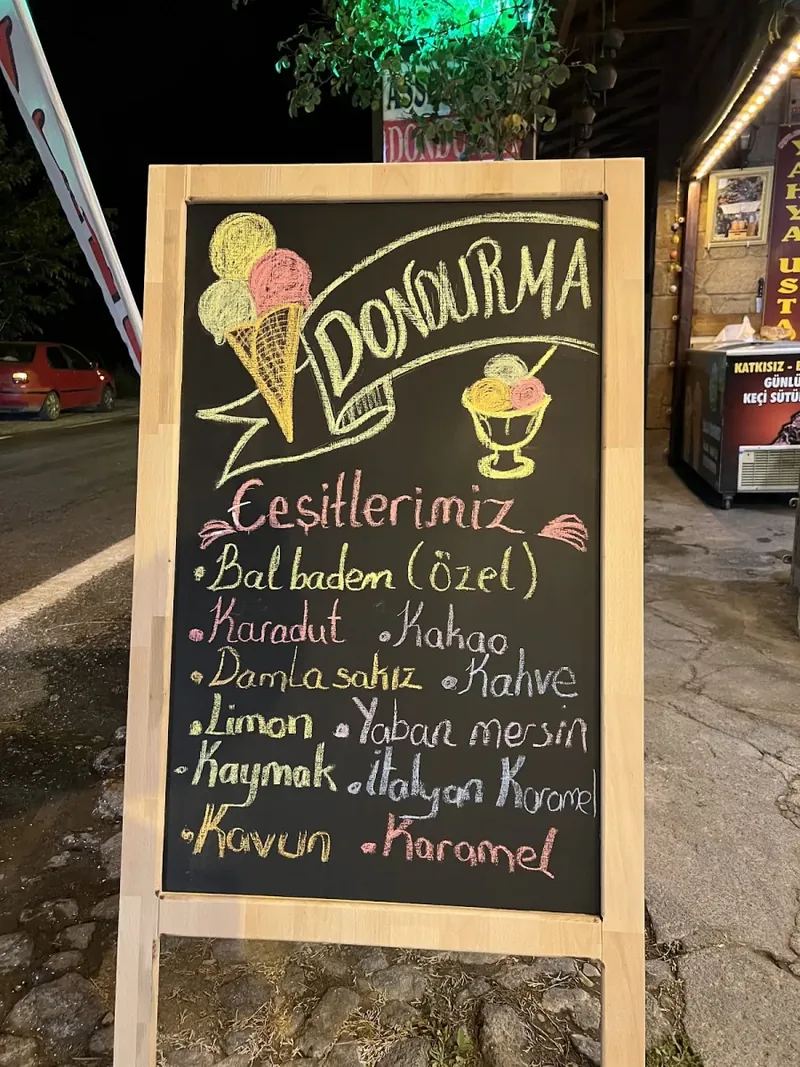 DONDURMA
Çeşitlerimiz
• Bal badem (özel)
• Karadut • Kakao
• Damla sakız • Kahve
• Limon • Yaban mersin
• Kaymak • İtalyan Karamel
• Kavun • Karamel
YAHYA USTA
KATKISIZ -
GÜNLÜ
KEÇİ SÜTÜ